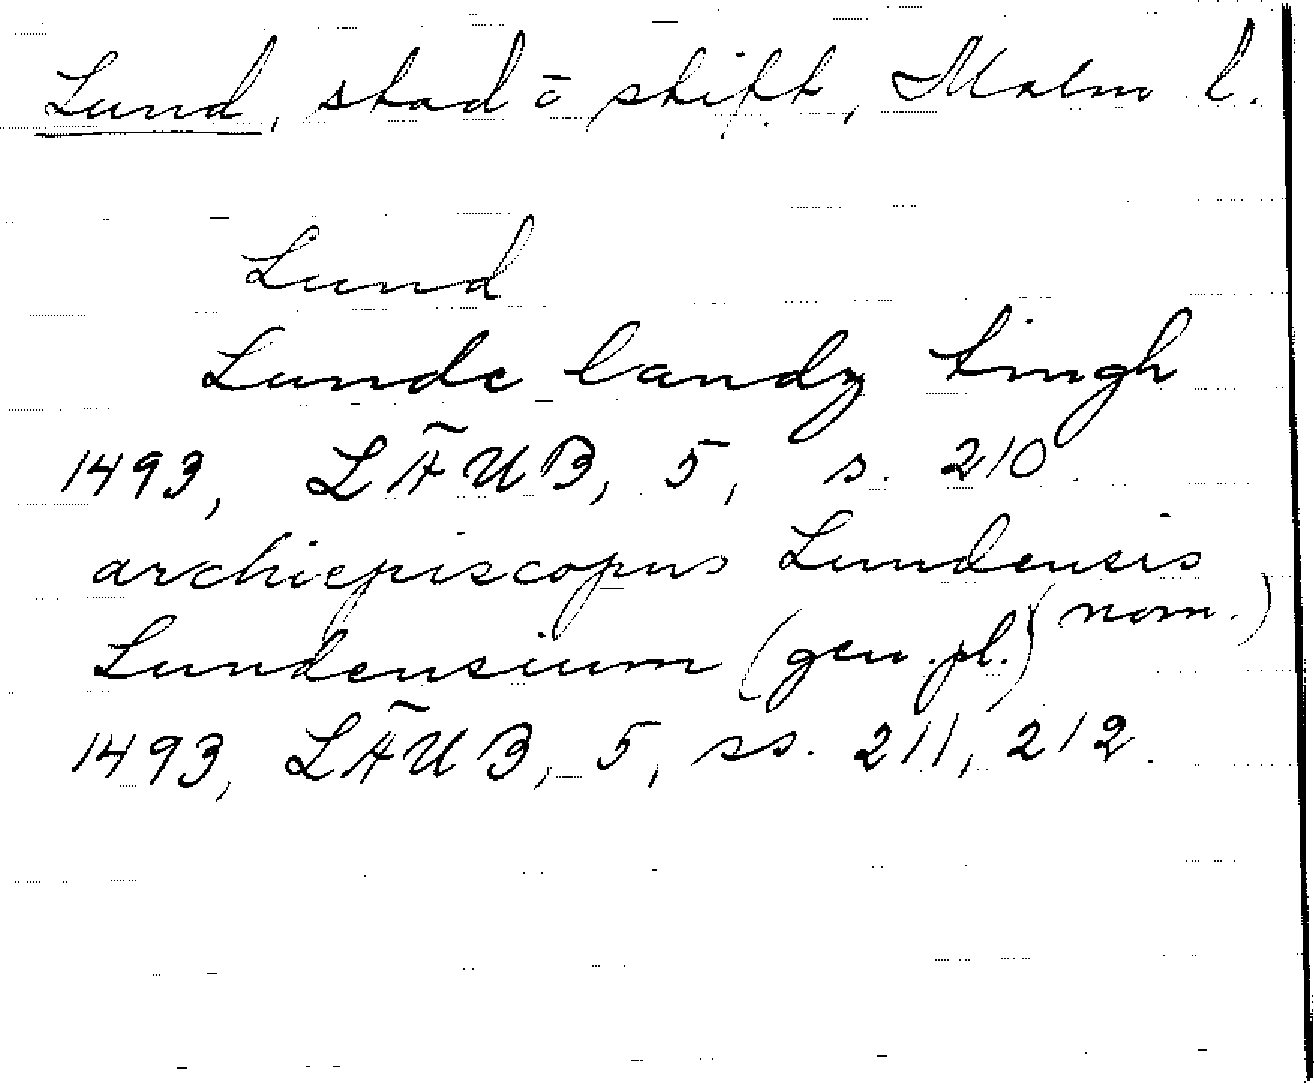 Lund, stad o stift, Malm l.
Lund
Lunde landz tingh
1493, LÄUB, 5, s. 210.
archiepiscopus Lundensis (nom.)
Lundensium (gen. pl.)
1493, LÄUB, 5, ss. 211, 212.